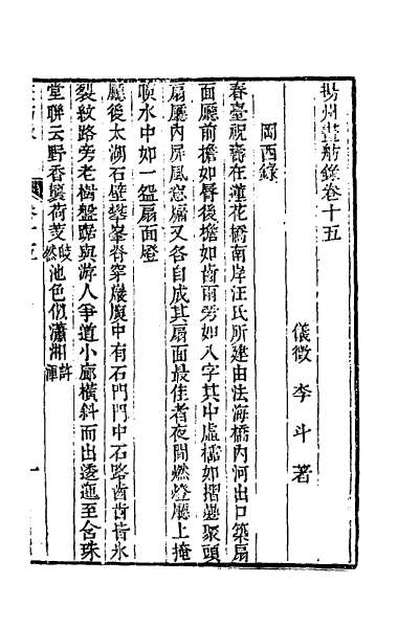 揚州畫舫錄卷十五
儀徵李斗著
岡西錄
春臺祝壽在蓮花橋南岸汪氏所建由法海橋內河出口築扇
面廳前檐如脣後檐如齒兩旁如八字其中虛櫺如摺疊聚頭
扇廳內屏風窻牖又各自成其扇面最佳者夜間燃燈廳上掩
映水中如一盌扇面燈
廳後太湖石壁攀峯脊穿巖腹中有石門門中石路齒齒皆冰
裂紋路旁老樹盤踞與游人爭道小廊橫斜而出逶迤至含珠
堂聯云野香襲荷芰皎然池色似瀟湘許渾